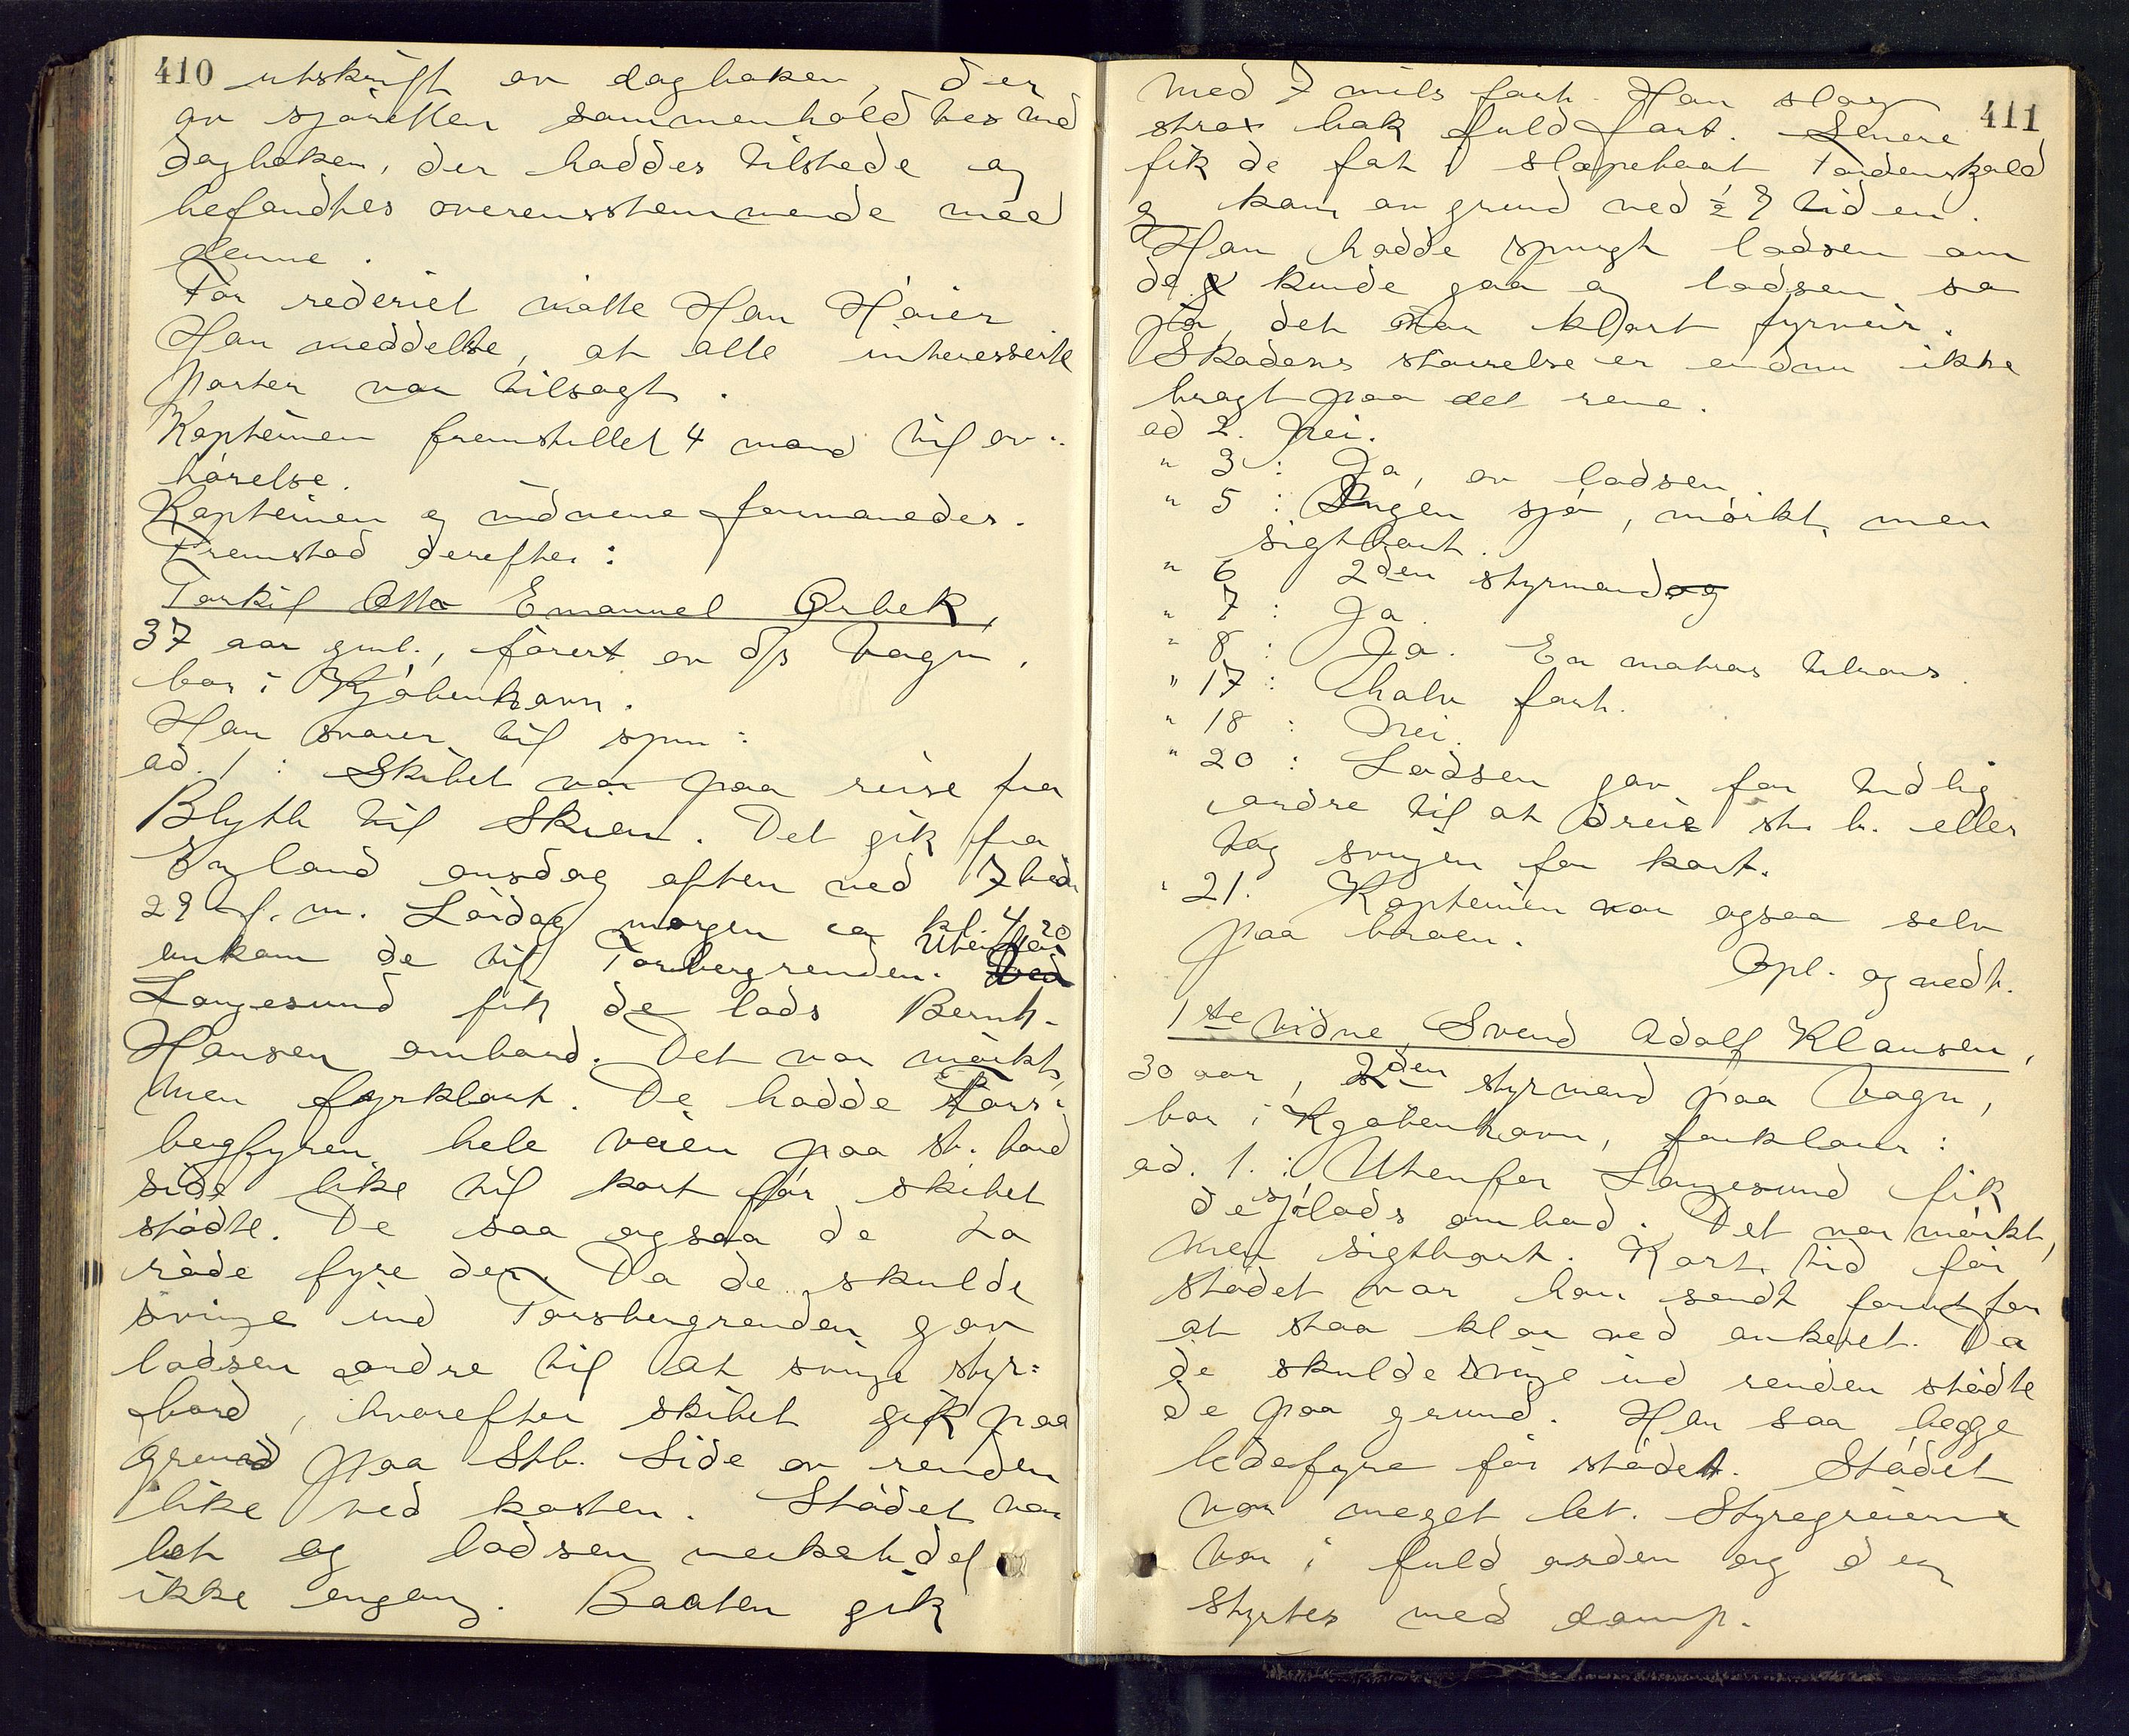 410
utskrift av dagboken, der
av sjøretten sammenholdtes med
dagboken, der haddes tilstede og
befandtes overensstemmende med
denne.
For rederiet møtte Han Høier
Han meddelte, at alle interesserte
parter var tilsagt.
Kapteinen fremstillet 4 mand til av-
hørelse.
Kapteinen og vidnene formanedes.
Fremstod derefter:
Torkil Otto Emanuel Orbek,
37 aar gml., fører av d/s Vagn,
bor i Kjøbenhavn.
Han svarer til spm:
ad. 1: Skibet var paa reise fra
Blyth til Skien. Det gik fra
England onsdag aften ved 7 tiden
29 f. m. Lørdag morgen ca kl. 4 20
ankom de til Torsbergrenden. Utenfor
Langesund fik de lods Bernh.
Hansen ombord. Det var mørkt,
men fyrklart. De hadde Tors-
bergfyren hele veien paa st. bord
side like til kort før skibet
stødte. De saa ogsaa de to
røde fyre der. Da de skulde
svinge ind Torsbergrenden gav
lodsen ordre til at svinge styr-
bord, hvorefter skibet gik paa
grund paa Stb. side av renden
like ved kosten. Stødet var
let og lodsen merket det
ikke engang. Baaten gik
411
med 7 mils fart. Han slog
strax bak fuld fart. Senere
fik de fat i slæpebaat Tordenskjold
og kom av grund ved ½ 8 tiden.
Han hadde spurgt lodsen om
de kunde gaa og lodsen sa
ja, det var klart fyrveir.
Skadens størrelse er endnu ikke
bragt paa det rene.
ad 2. Nei.
" 3: Ja, av lodsen
" 5: Ingen sjø, mørkt, men
sigtbart.
" 6 2den styrmand og
" 7: Ja.
" 8: Ja. En matros tilrors.
" 17: halv fart.
" 18: Nei.
" 20: Lodsen gav for tidlig
ordre til at dreie st. b. eller
tog svingen for kort.
" 21. Kapteinen var ogsaa selv
paa broen.
Opl. og vedt.
1ste vidne Svend Adolf Klausen,
30 aar, 2den styrmand paa Vagn,
bor i Kjøbenhavn, forklarer:
ad. 1.: Utenfor Langesund fik
de sjølods ombord. Det var mørkt,
men sigtbart. Kort tid før
stødet var han sendt forut for
at staa klar ved ankeret. Da
de skulde svinge ind renden stødte
de paa grund. Han saa begge
ledefyre før stødet. Stødet
var meget let. Styregreierne
var i fuld orden og der
styrtes med damp.